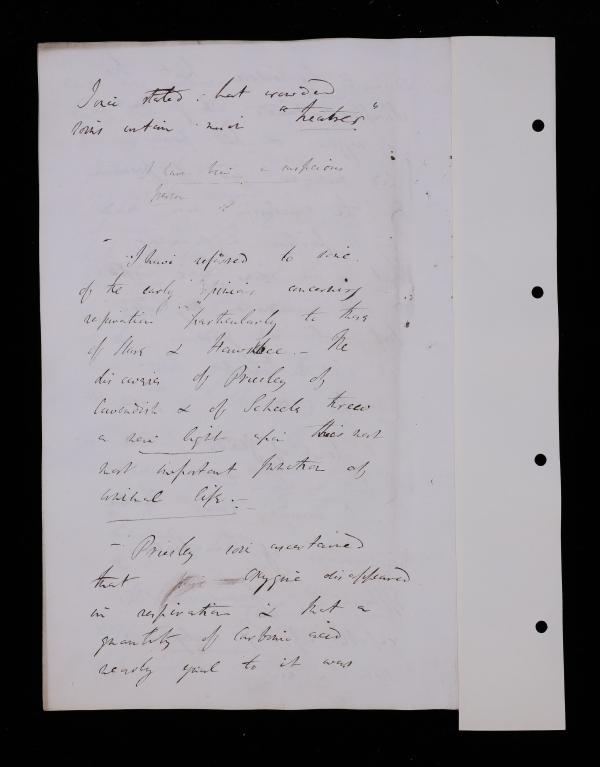 stated that crowded
"theatres"
I have been a suspicious
person
I have referred to some
of the early opinions concerning
respiration particularly to those
of & Hawksbee. – The
discoveries of Priesley of
Cavendish & of Scheele threw
a new light upon this most
most important function of
animal life. –
– Priesley soon ascertained
that oxygene disappeared
in respiration & that a
quantity of carbonic acid
nearly equal to it was